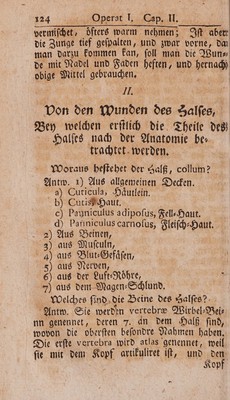 124 Operat I. Cap. II.
vermischet, öfters warm nehmen; Ist aber
die Zunge tief gespalten, und zwar vorne, da
man darzu kommen kan, soll man die Wun-
de mit Nadel und Faden heften, und hernach
obige Mittel gebrauchen.
II.
Von den Wunden des Halses,
Bey welchen erstlich die Theile des
Halses nach der Anatomie be-
trachtet werden.
Woraus bestehet der Halß, collum?
Antw. 1) Aus allgemeinen Decken.
a) Cuticula, Häutlein.
b) Cutis Haut.
c) Panniculus adiposus, Fell-Haut.
d) Panniculus carnosus, Fleisch-Haut.
2) Aus Beinen,
3) aus Musculn,
4) aus Blut-Gefäsen,
5) aus Nerven,
6) aus der Luft-Röhre,
7) aus dem Magen-Schlund.
Welches sind die Beine des Halses?
Antw. Sie werden vertebræ Wirbel-Bei-
nn genennet, deren 7. an dem Halß sind,
wovon die obersten besondre Nahmen haben.
Die erste vertebra wird atlas genennet, weil
sie mit dem Kopf artikuliret ist, und den
Kopf